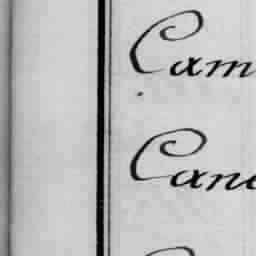 Cam
Cane